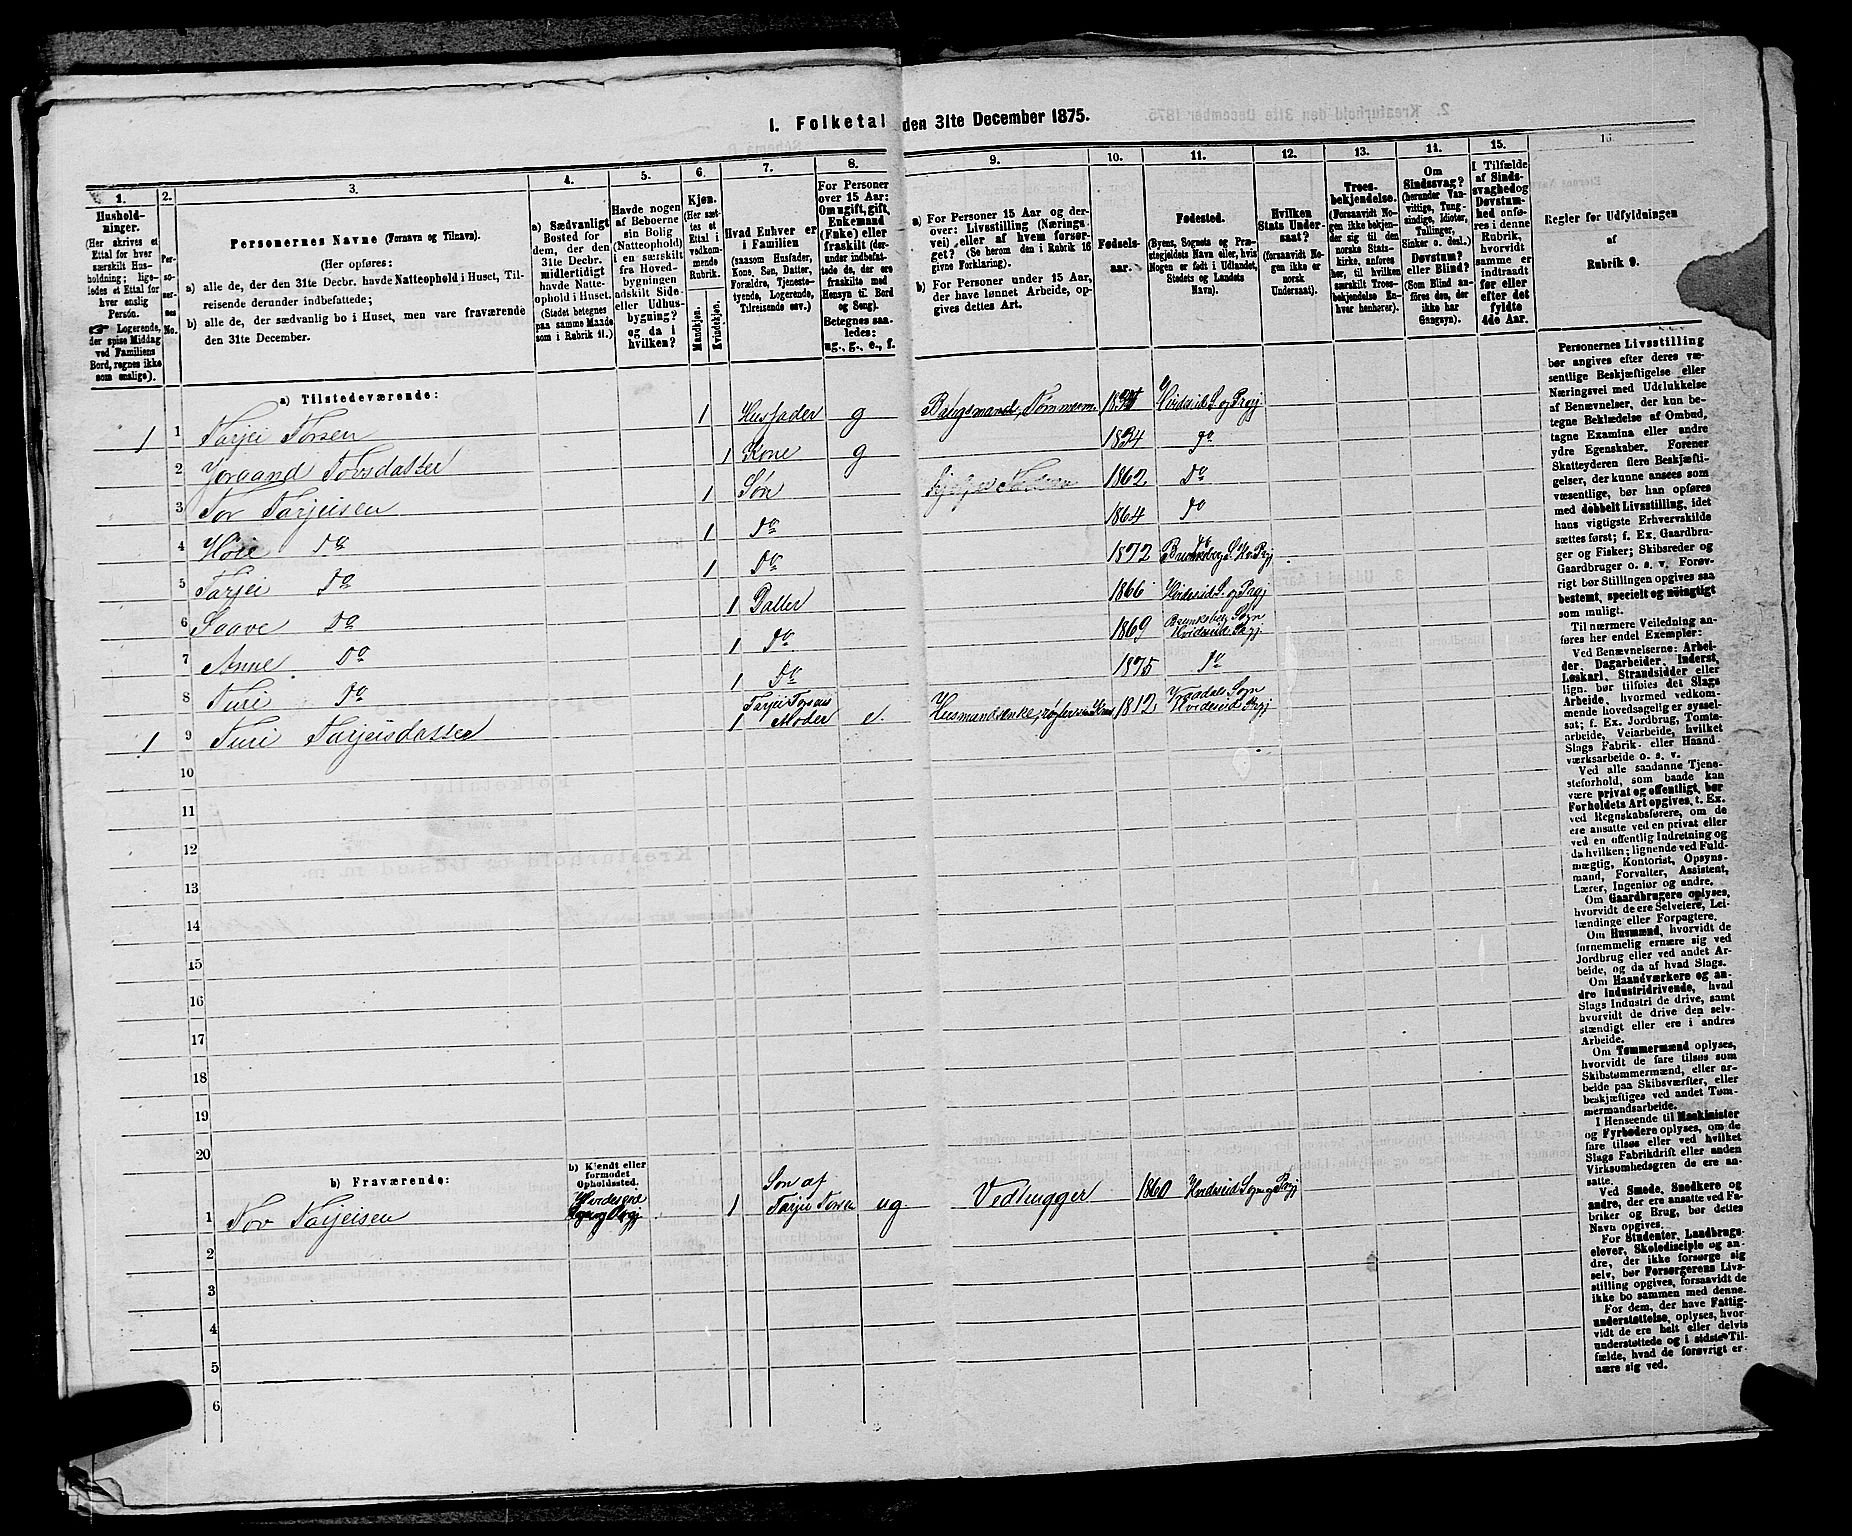 1. Folketal den 31te December 1875.
1.
Hushold-
ninger.
(Her skrives et
Ettal for hver
særskilt Hus-
holdning; lige-
ledes et Ettal for
hver enslig
Person.
☞ Logerende,
der spise Middag
ved Familiens
Bord, regnes ikke
som enslige).
2.
Per-
so-
ner-
nes
No.
3.
Personernes Navne (Fornavn og Tilnavn).
(Her opføres:
a) alle de, der den 31te Decbr. havde Natteophold i Huset, Til-
reisende derunder indbefattede;
b) alle de, der sædvanlig bo i Huset, men vare fraværende
den 31te December.
4.
a) Sædvanligt
Bosted for
dem, der den
31te Decbr.
midlertidigt
havde Natte-
ophold i Huset.
(Stedet betegnes
paa samme Maade
som i Rubrik 11.)
5.
Havde nogen
af Beboerne
sin Bolig
(Natteophold)
i en særskilt
fra Hoved-
bygningen
adskilt Side-
eller Udhus-
bygning?
og da i
hvilken?
6.
Kjøn.
(Her sæt-
tes et
Ettal i
vedkom-
mende
Rubrik.
Mandkjøn.
Kvindekjøn.
7.
Hvad Enhver er
i Familien
(saasom Husfader,
Kone, Søn, Datter,
Forældre, Tjeneste-
tyende, Logerende,
Tilreisende osv.)
8.
For Personer
over 15 Aar:
Om ugift, gift,
Enkemand
(Enke) eller
fraskilt (der-
under indbefat-
tede de, der ere
fraskilte med
Hensyn til Bord
og Seng).
Betegnes saa-
ledes:
ug., g., e., f.
9.
a) For Personer 15 Aar og der-
over: Livsstilling (Nærings-
vei) eller af hvem forsør-
get? (Se herom den i Rubrik 16
givne Forklaring).
b) For Personer under 15 Aar,
der have lønnet Arbeide, op-
gives dettes Art.
10.
Fødsels-
aar.
11.
Fødested.
(Byens, Sognets og Præ-
stegjeldets Navn eller, hvis
Nogen er født i Udlandet,
Stedets og Landets
Navn).
12.
Hvilken
Stats Under-
saat?
(forsaavidt No-
gen ikke er
norsk
Undersaat).
13.
Troes-
bekjendelse.
(Forsaavidt No-
gen ikke bekjen-
der sig til den
norske Stats-
kirke, anføres
her, til hvilken
særskilt Troes-
bekjendelse En-
hver henhører).
14.
Om
Sindssvag?
(herunder Van-
vittige, Tung-
sindige, Idioter,
Tullinger,
Sinker o. desl.)
Døvstum?
eller Blind?
(Som Blind an-
føres den, der
ikke har
Gangsyn).
15.
I Tilfælde
af Sinds-
svaghed og
Døvstum-
hed anfø-
res i denne
Rubrik,
hvorvidt
samme er
indtraadt
før eller
efter det
fyldte
4de Aar.
16.
Regler for Udfyldningen
af
Rubrik 9.
a) Tilstedeværende:
1 1 Tarjei Torsen 1 Husfader g Bøigsmand, Tømmerm. Hvideseid S. og Prgj
2 Joraand Torsdatter 1 Kone g 1834 do
3 Tor Tarjeisen 1 Søn 1862 Do
4 Do 1 Do 1864 Do
5 Tarjei Do 1 Do 1872 Brunkeberg S. Hv. Prgj.
6 Saave Do 1 Datter 1866 Hvideseid S. og Prgj
7 Anne Do 1 Do 1869 Brunkeberg Sogn Hvideseid Prgj.
8 Turi Do 1 Do 1875 Do
1 9 Turi Tarjeisdatter 1 Tarjei Torsens Moder e. Husmandsenke, 1812 Vraadal Sogn Hvideseid Prgj
10
11
12
13
14
15
16
17
18
19
20
b) Fraværende:
b) Kjendt eller
formodet
Opholdssted.
1 Tov Tarjeisen Hvideseid Sogn og Prgj 1 Søn af Tarjei Torsen ug Vedhugger 1860 Hvideseid Sogn og Prgj
2
3
4
5
6
Personernes Livsstilling
bør angives efter deres væ-
sentlige Beskjæftigelse eller
Næringsvei med Udelukkelse
af Benævnelser, der kun be-
tegne Beklædelse af Ombud,
tagne Examina eller andre
ydre Egenskaber. Forener
Skatteyderen flere Beskjæfti-
gelser, der kunne ansees som
væsentlige, bør han opføres
med dobbelt Livsstilling, idet
hans vigtigste Erhvervskilde
sættes først; f. Ex. Gaardbru-
ger og Fisker; Skibsreder og
Gaardbruger o. s. v. Forøv-
rigt bør Stillingen opgives saa
bestemt, specielt og nøiagtigt
som muligt.
Til nærmere Veiledning an-
føres her endel Exempler:
Ved Benævnelserne: Arbei-
der, Dagarbeider, Inderst,
Løskarl, Strandsidder eller
lign. bør tilføies det Slags
Arbeide, hvormed vedkom-
mende hovedsagelig er syssel-
sat; f. Ex. Jordbrug, Tomte-
arbeide, Veiarbeide, hvilket
Slags Fabrik- eller Haand-
værksarbeide o. s. v.
Ved alle saadanne Tjene-
steforhold, som baade kan
være privat og offentligt, bør
Forholdets Art opgives, t. Ex.
ved Regnskabsførere, om de
ere ansatte ved en privat eller
ved en offentlig Indretning og
da hvilken; lignende ved Fuld-
mægtig, Kontorist, Opsyns-
mand, Forvalter, Assistent,
Lærer, Ingeniør og andre.
Om Gaardbrugere oplyses,
hvorvidt de ere Selveiere, Lei-
lændinge eller Forpagtere.
Om Husmænd, hvorvidt de
fornemmelig ernære sig ved
Jordbrug eller ved andet Ar-
beide, og da af hvad Slags.
Om Haandværkere og an-
dre Industridrivende, hvad
Slags Industri de drive, samt
hvorvidt de drive den selv-
stændigt eller ere i andres
Arbeide.
Om Tømmermænd oplyses,
hvorvidt de fare tilsøs som
Skibstømmermænd, eller ar-
beide paa Skibsværfter, eller
beskjæftiges ved andet Tøm-
mermandsarbeide.
I Henseende til Maskinister
og Fyrbødere oplyses, om de
fare tilsøs eller ved hvilket
Slags Fabrikdrift eller anden
Virksomhedsgren de ere an-
satte.
Ved Smede, Snedkere og
andre, der ere ansatte ved Fa-
briker og Brug, bør dettes
Navn opgives.
For Studenter, Landbrugs-
elever, Skoledisciple og an-
dre, der ikke forsørge sig
selv, bør Forsørgerens Livs-
stilling opgives, forsaavidt de
ikke bo sammen med denne.
For dem, der have Fattig-
understøttelse, oplyses, hvor-
vidt de ere helt eller delvis
understøttede og i sidste Til-
fælde, hvad de forøvrigt er-
nære sig ved.